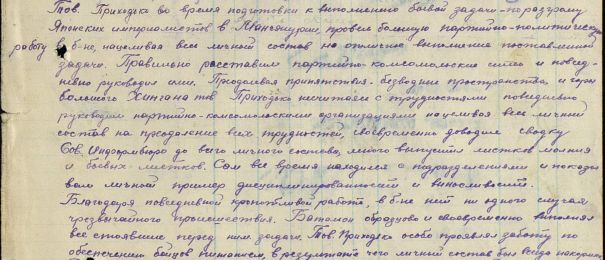 Тов. Приходько во время подготовки к выполнению боевой задачи - по разгрому
Японских империалистов в Манчжурии, провел большую партийно-политическую
работу в б-не, нацеливая весь личный состав на отлично выполнение поставленной
задачи. Правильно расставил партийно-комсомольские силы и повсед-
невно руководил ими. Преодолевая препятствия - безводные пространства и горы
большого Хингана тов Приходько несчитаясь с трудностями повседневно
руководил партийно-комсомольскими организациями нацеливая весь личный
состав на преодоление всех трудностей, своевременно доводил сводку
Сов. Информбюро до всего личного состава, много выпустил листков молния
и боевых листков. Сам все время находился с подразделениями и показы
вал личный пример дисциплинированности и выносливости.
Благодаря повседневной кропотливой работе, в б-не нет ни одного случая
чрезвычайного происшествия. Батальон образцово и своевременно выполнял
все стоявшие перед ним задачи. Тов. Приходько особо проявлял заботу по
обеспечению бойцов питанием, в результате чего личный состав был всегда накормлен